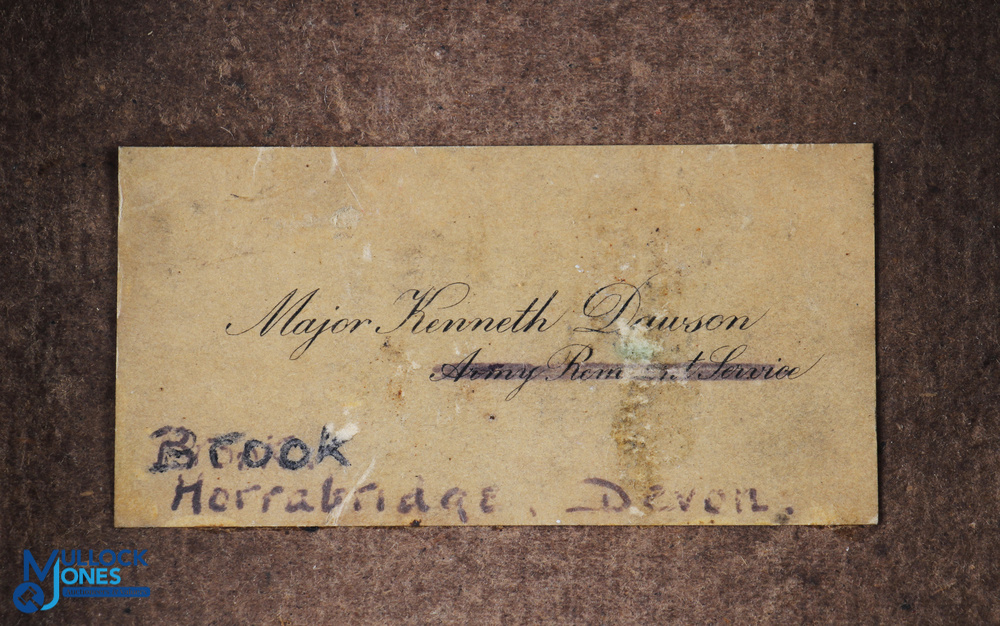 Major Kenneth Dawson
Army Service
Brook
Horrabridge, Devon.
MULLOCK
JONES